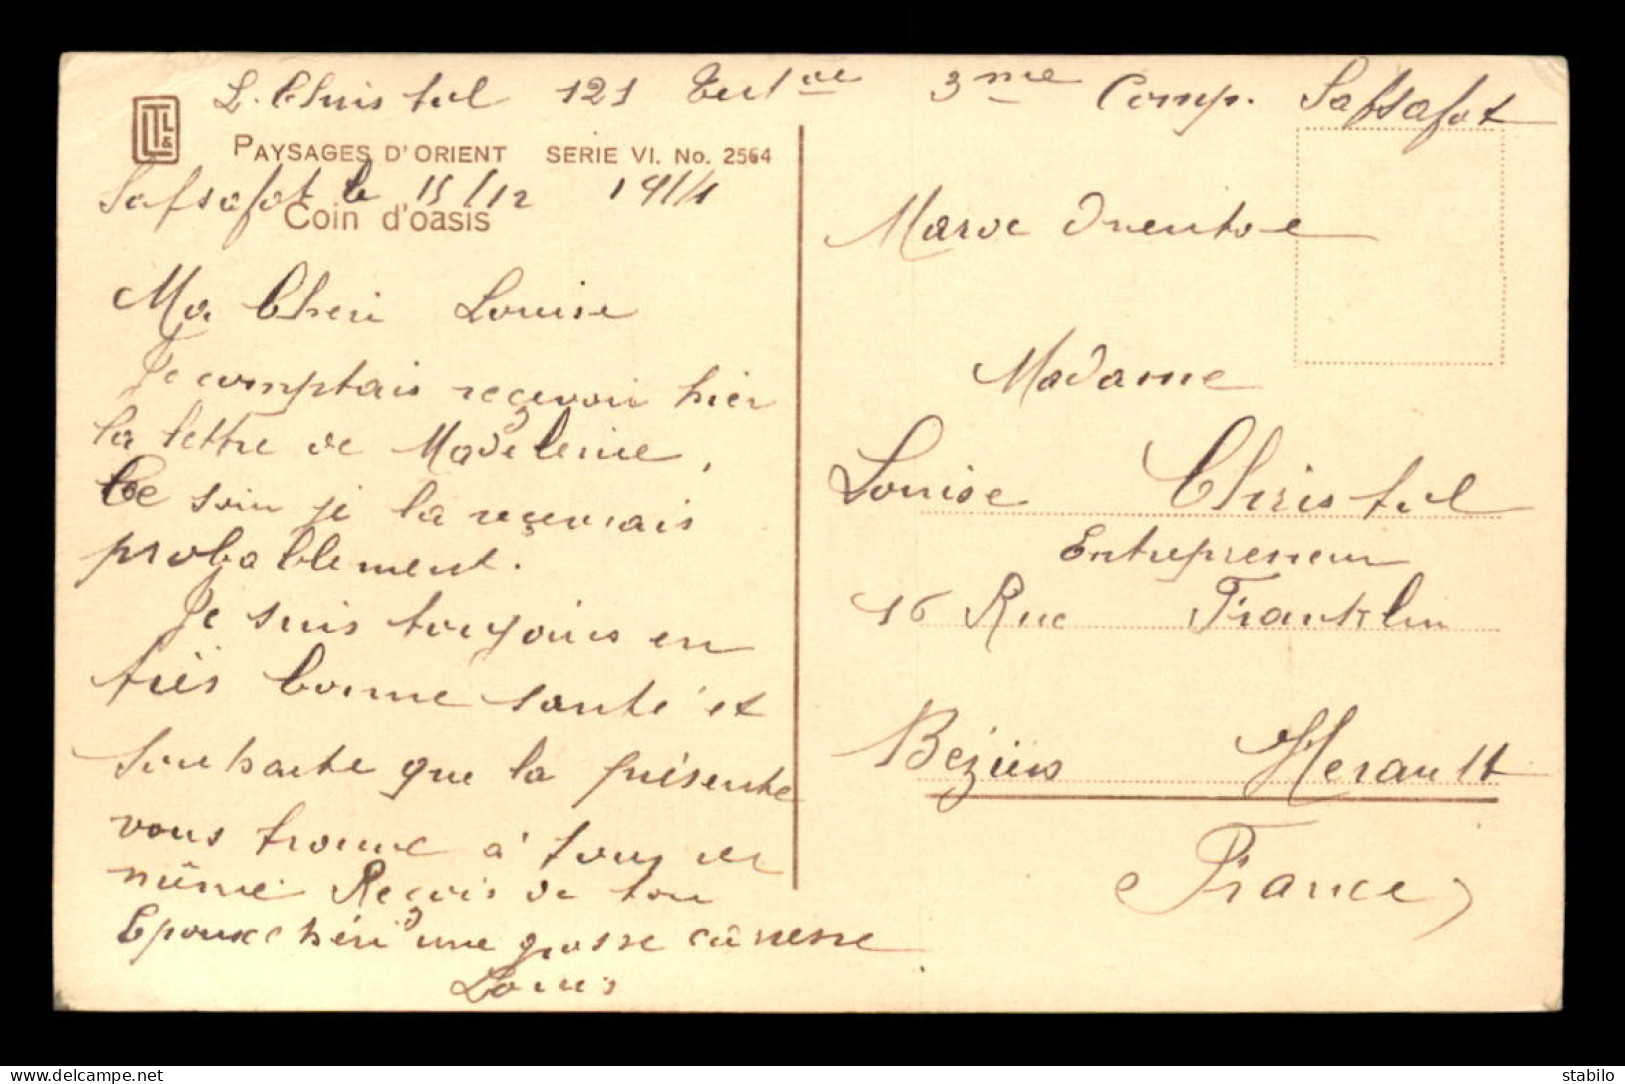 L. Christol 121 Territ.ale 3me Comp. Safsafat
LTL&
PAYSAGES D'ORIENT SERIE VI. No. 2564
Safsafat le 15/12 1914
Coin d'oasis
Ma Cheri Louise
Je comptais reçevoir hier
la lettre de Madeleine,
Ce soir je la reçevrais
probablement.
Je suis toujours en
très bonne santé et
souhaite que la présente
vous trouve à tous de
même Reçois de ton
Epoux chéri une grosse caresse
Louis
Maroc Orientale
Madame
Louise Christol
Entrepreneur
16 Rue Franklin
Béziers Herault
(France)
Delcampe.net
stabilo